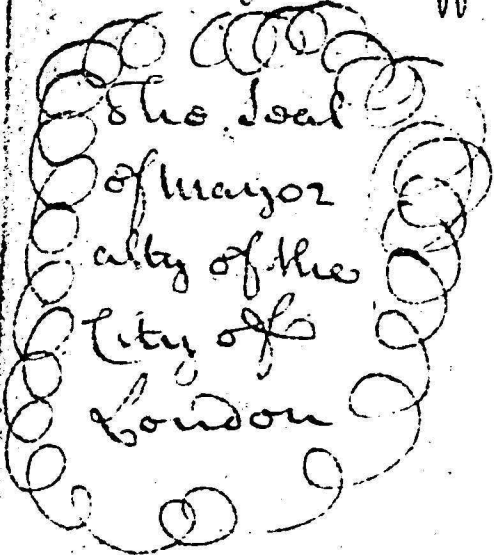 The Seal
of Mayor
alty of the
City of
London